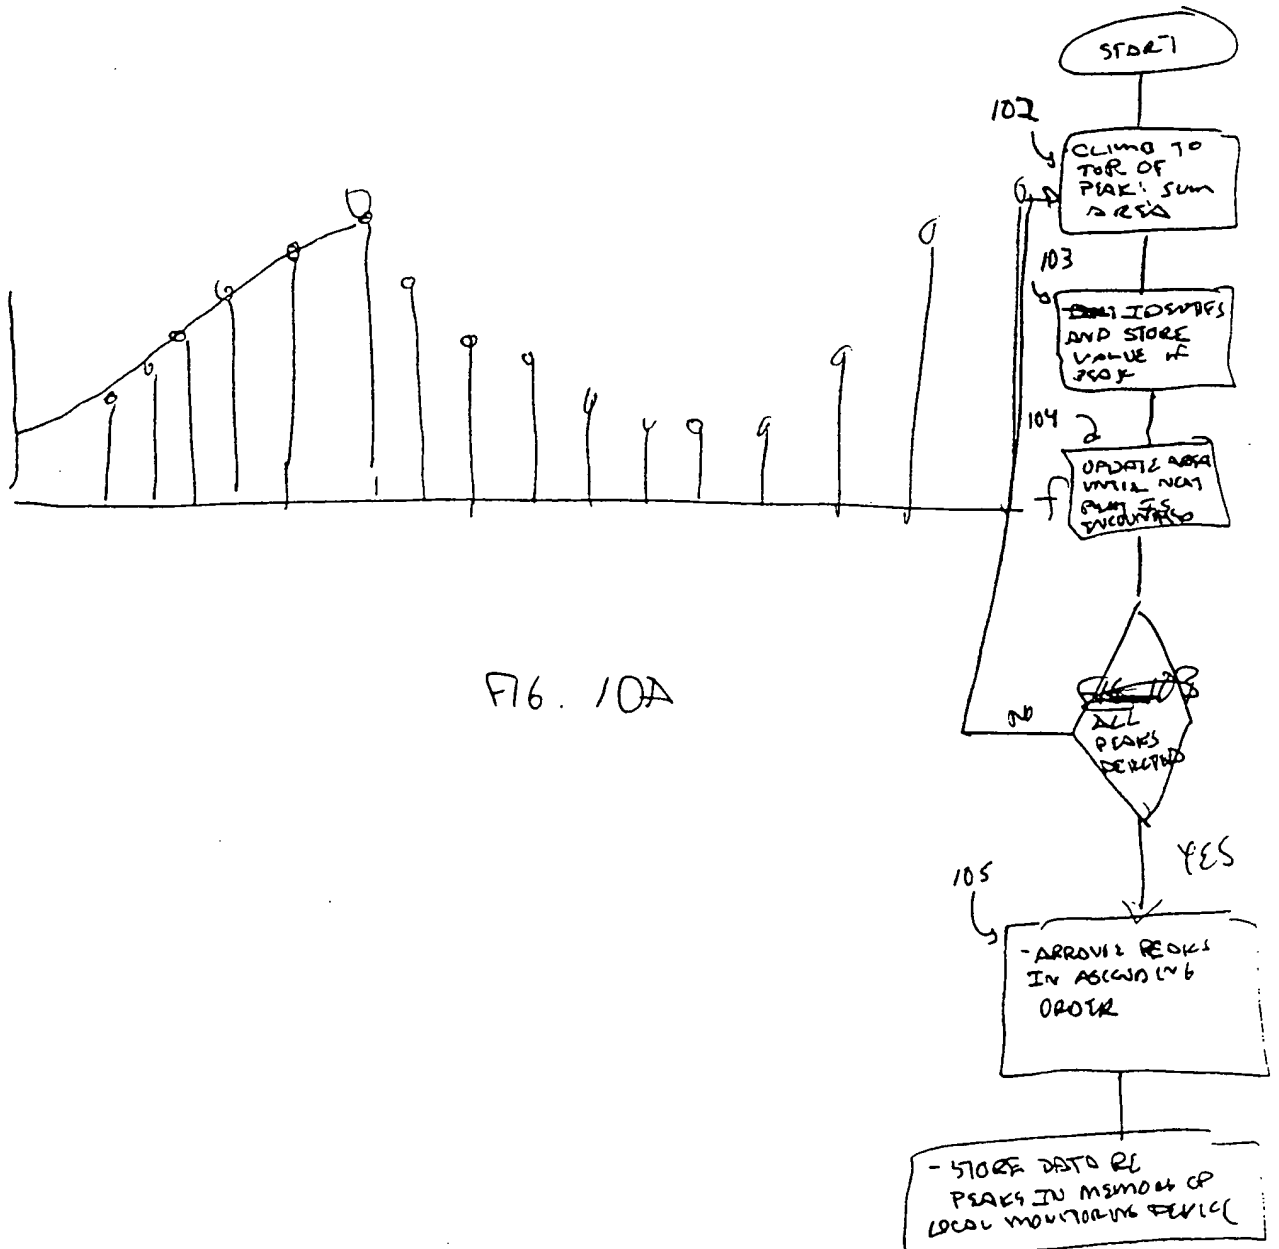 START
102
CLIMB TO
TOP OF
PEAK: SUM
AREA
103
IDENTIFS
AND STORE
VALUE OF
PEAK
104
UPDATE AREA
UNTIL NEXT
PEAK IS
ENCOUNTERED
f
FIG. 10A
NO
ALL
PEAKS
DETECTED
YES
105
- ARRANGE PEAKS
IN ASCENDING
ORDER
- STORE DATA RE
PEAKS IN MEMORY OF
LOCAL MONITORING DEVICE